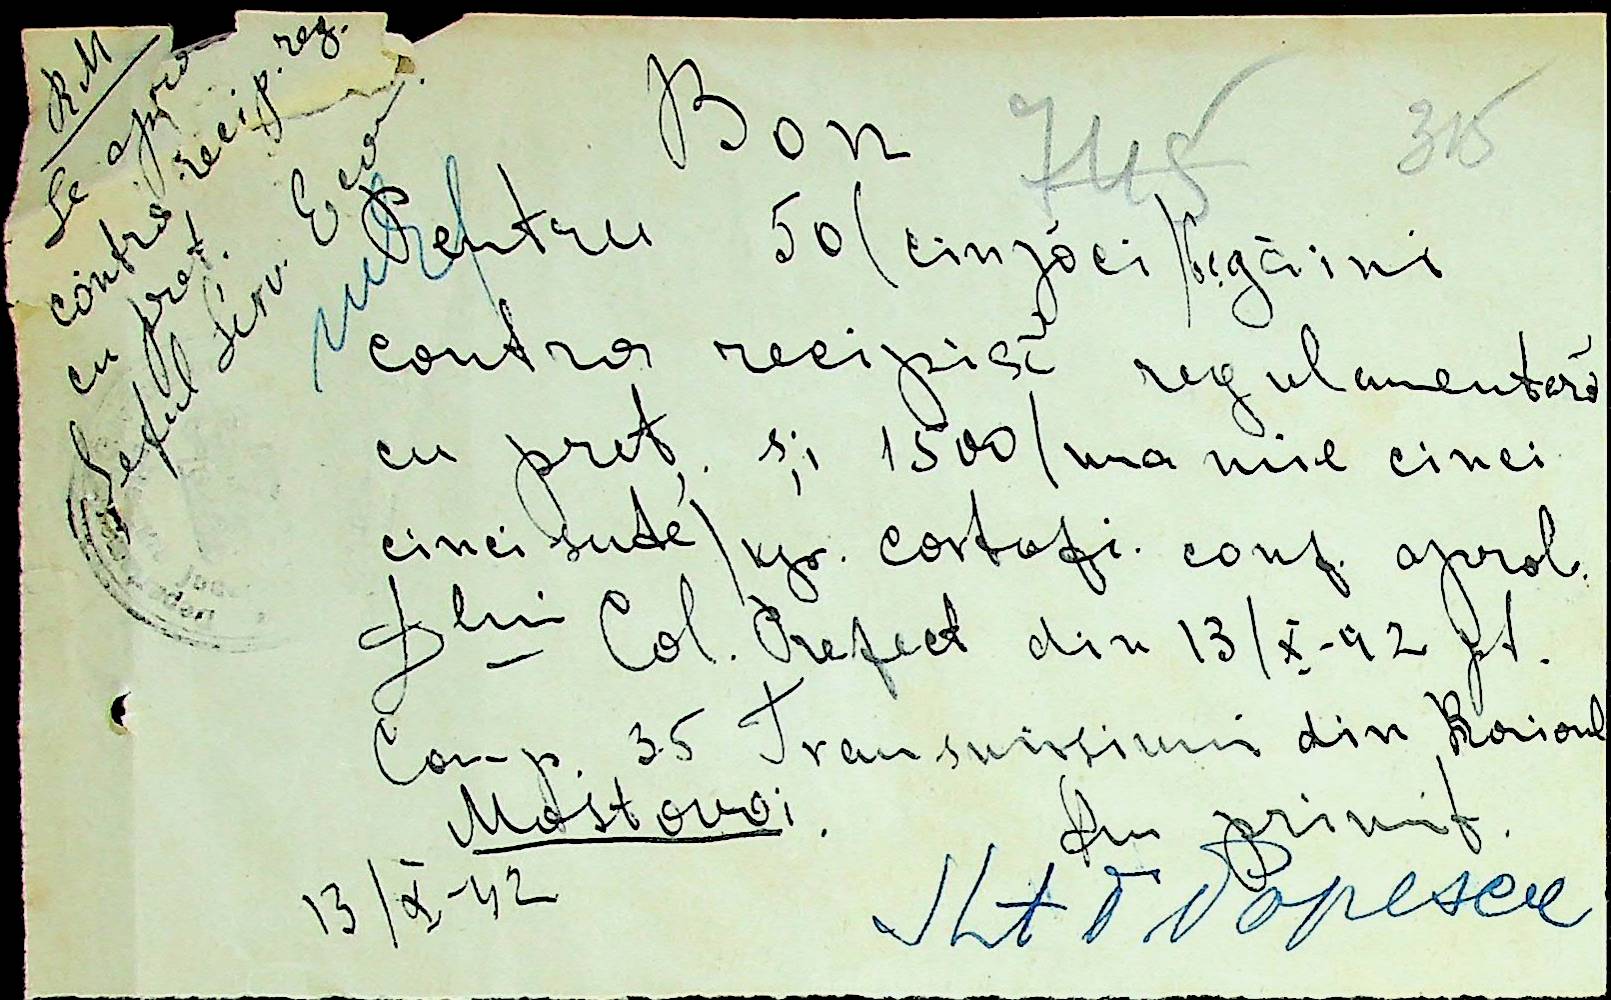 RM
Se apro
contra recip. reg.
cu preț.
Șeful Serv. Econ.
Bon
745
315
Pentru 50 (cinzeci) găini
contra recipisă regulamentară
cu preț. și 1500 (una mie cinci
cinci sute) kgr. cartofi. conf. aprob.
Dlui Col. Prefect din 13/X-42 pt.
Comp. 35 Transmisiuni din Raionul
Mostovoi.
Am primit.
13/X-42
Slt Popescu